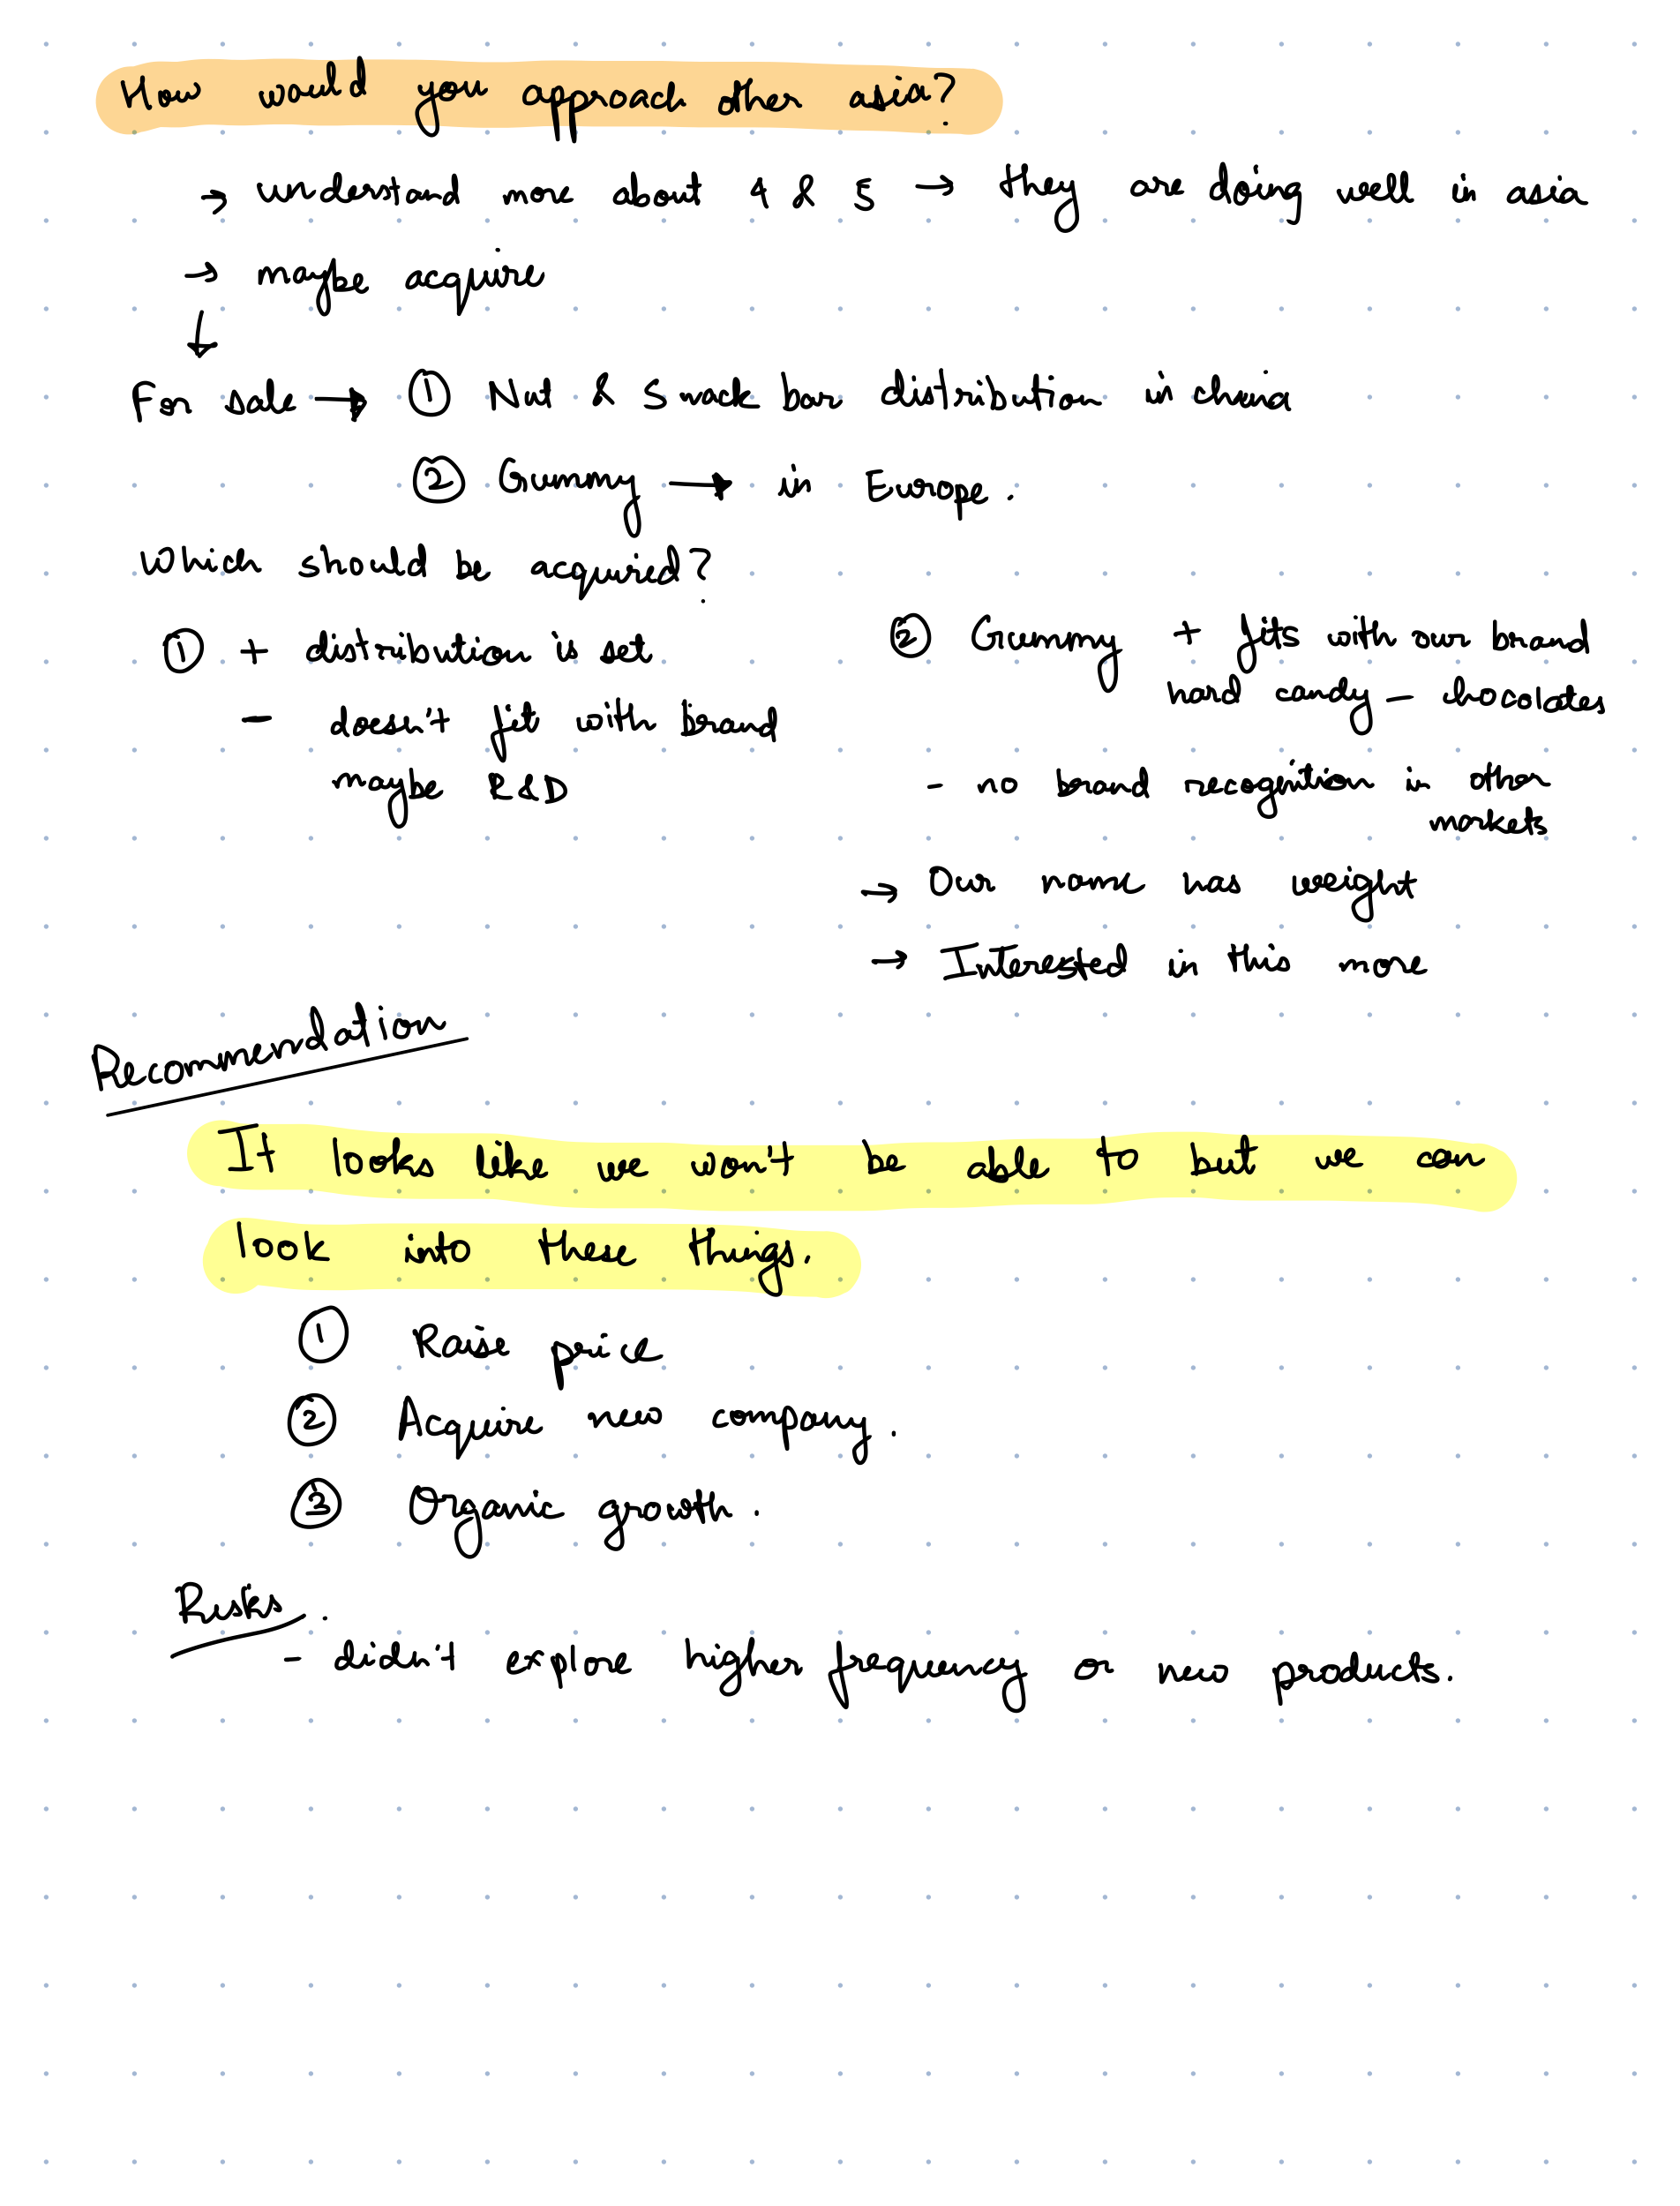 How would you approach other asia?
→ understand more about 4 & 5 → they are doing well in asia
→ maybe acquire
↓
For sale → ① Nut & Snack bar distribution in china
② Gummy → in Europe.
Which should be acquired?
① + distribution is set
- doesn't fit with brand
maybe R&D
② Gummy + fits with our brand
hard candy - chocolates
- no brand recognition in other
markets
→ Our name has weight
→ Interested in this more
Recommendation
It looks like we won't be able to but we can
look into these things.
① Raise price
② Acquire new company.
③ Organic growth.
Risks.
- didn't explore higher frequency or new products.